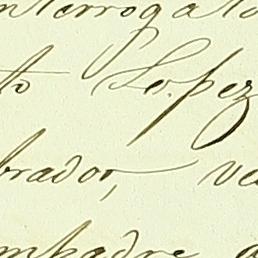 nterrogato
to Lopez
brador, ve
mpadre a